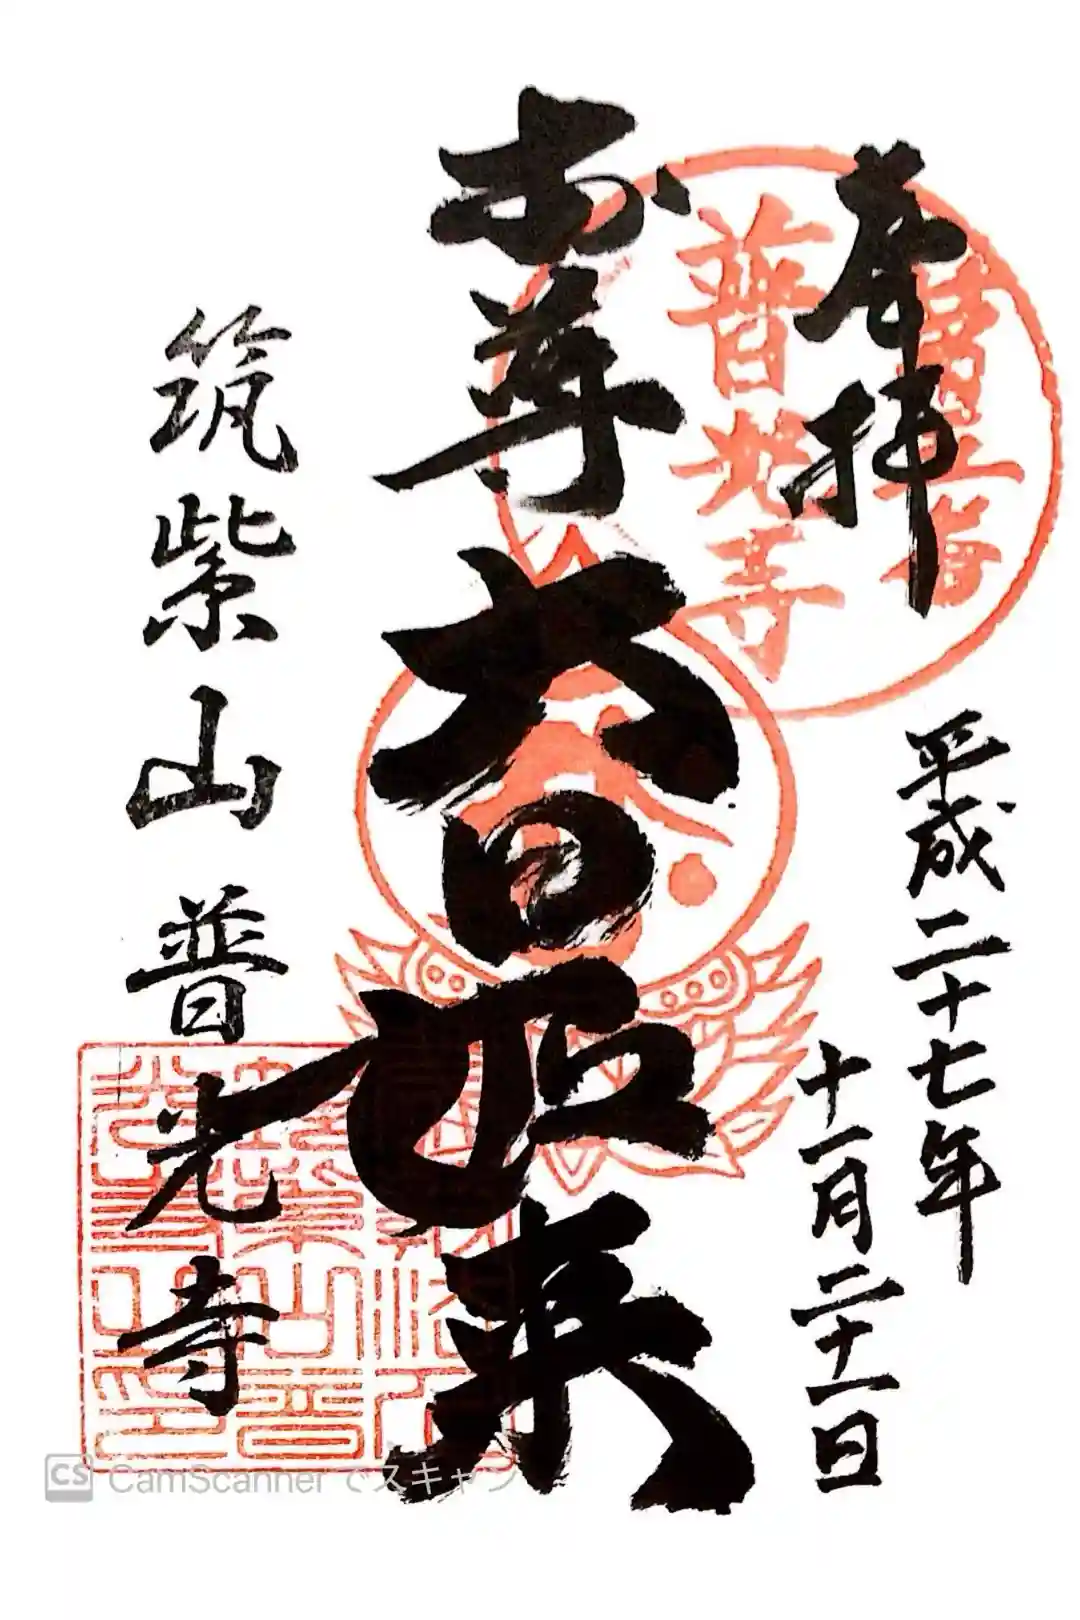 奉拝
平成二十七年
十一月二十一日
普光寺
本尊 大日如来
筑紫山 普光寺
CS CamScanner でスキャン